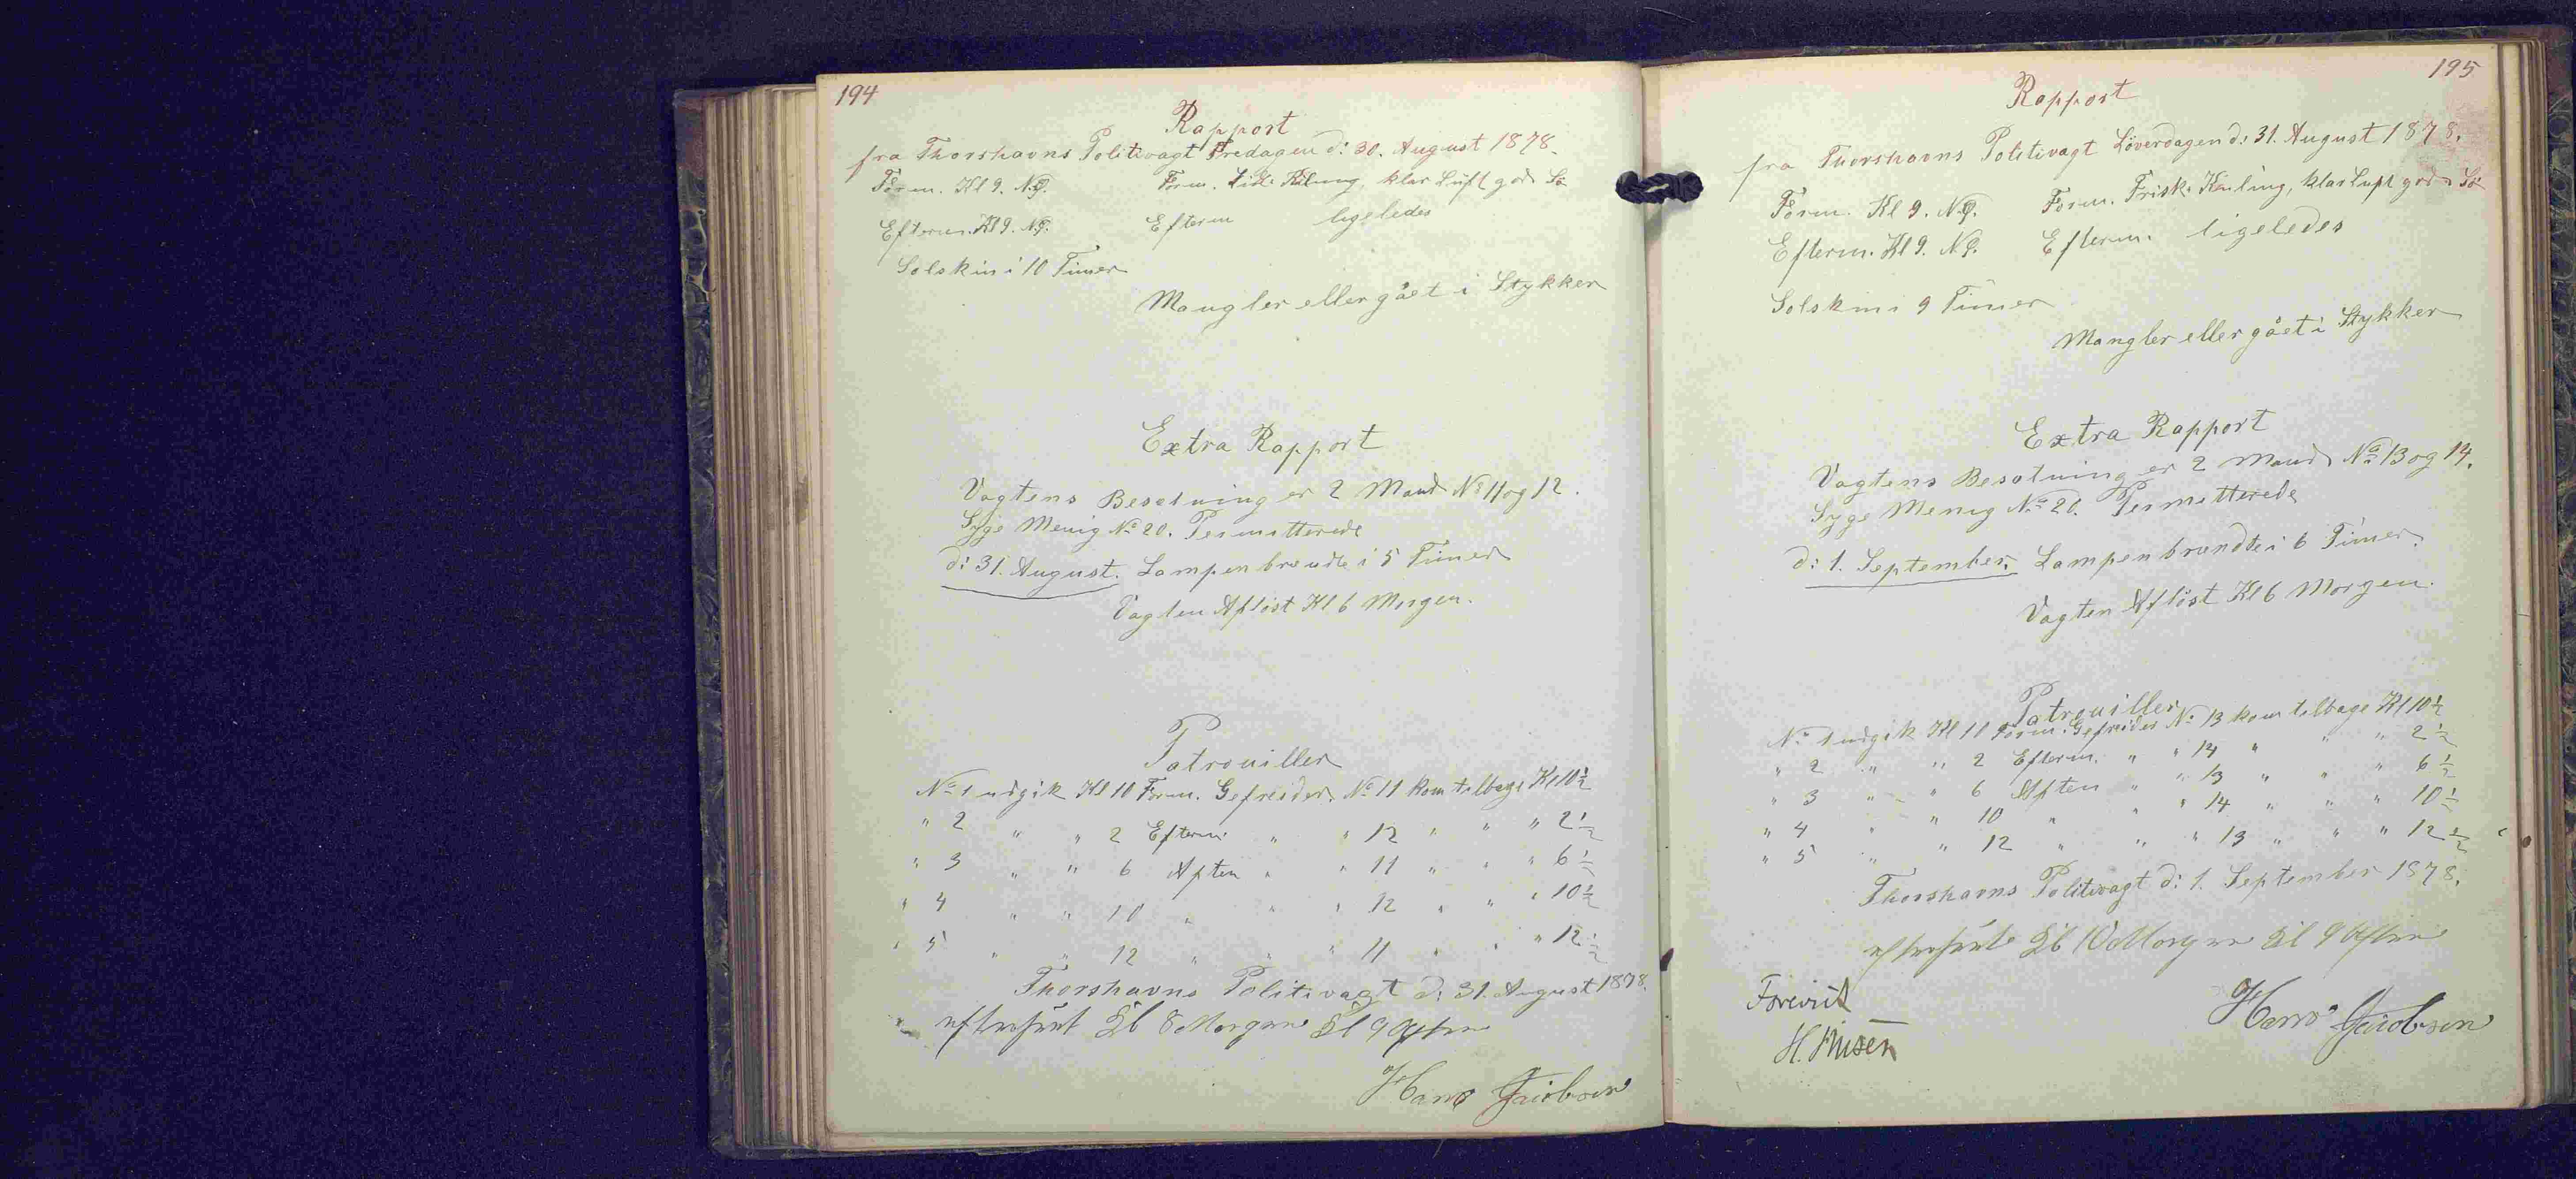 194
Rapport
fra Thorshavns Politivagt Fredagen d: 30. August 1878.
Form. Kl 9. N.Ø. Form. Lidt Kuling, klar Luft god Sö
Efterm. Kl 9. NØ. Efterm ligeledes
Solskin i 10 Timer
Mangler eller gået i Stykker
Extra Rapport
Vagtens Besætning er 2 Mand No 11 og 12.
Syge Menig No 20. Permitterede
d: 31. August. Lampen brendte i 5 Timer
Vagten Aflöst Kl 6 Morgen.
Patrouiller
No 1 udgik Kl 10 Form. Gefreider. No 11 kom tilbage Kl 10½
" 2 " " 2 Efterm. " " 12 " " " 2½
" 3 " " 6 Aften " " 11 " " " 6½
" 4 " " 10 " " " 12 " " " 10½
" 5 " " 12 " " " 11 " " " 12½
Thorshavns Politivagt d: 31. August 1878.
efterseet Kl 8 Morgen Kl 9 Aften
Hans Jacobsen
195
Rapport
fra Thorshavns Politivagt Löverdagen d: 31. August 1878.
Form. Kl 9. N.Ø. Form. Frisk Kuling, klar Luft god Sö
Efterm. Kl 9. NØ. Efterm. ligeledes
Solskin i 9 Timer
Mangler eller gået i Stykker
Extra Rapport
Vagtens Besætning er 2 Mand No 13 og 14.
Syge Menig No 20. Permitterede
d: 1. September. Lampen brendte i 6 Timer.
Vagten Aflöst Kl 6 Morgen.
Patrouiller
No 1 udgik Kl 11 Form. Gefreider No 13 kom tilbage Kl 10½
" 2 " " 2 Efterm. " " 14 " " " 2½
" 3 " " 6 Aften " " 13 " " " 6½
" 4 " " 10 " " " 14 " " " 10½
" 5 " " 12 " " " 13 " " " 12½
Thorshavns Politivagt d: 1. September 1878.
efterseet Kl 10 Morgen Kl 9 Aften
Hans Jacobsen
Forevist